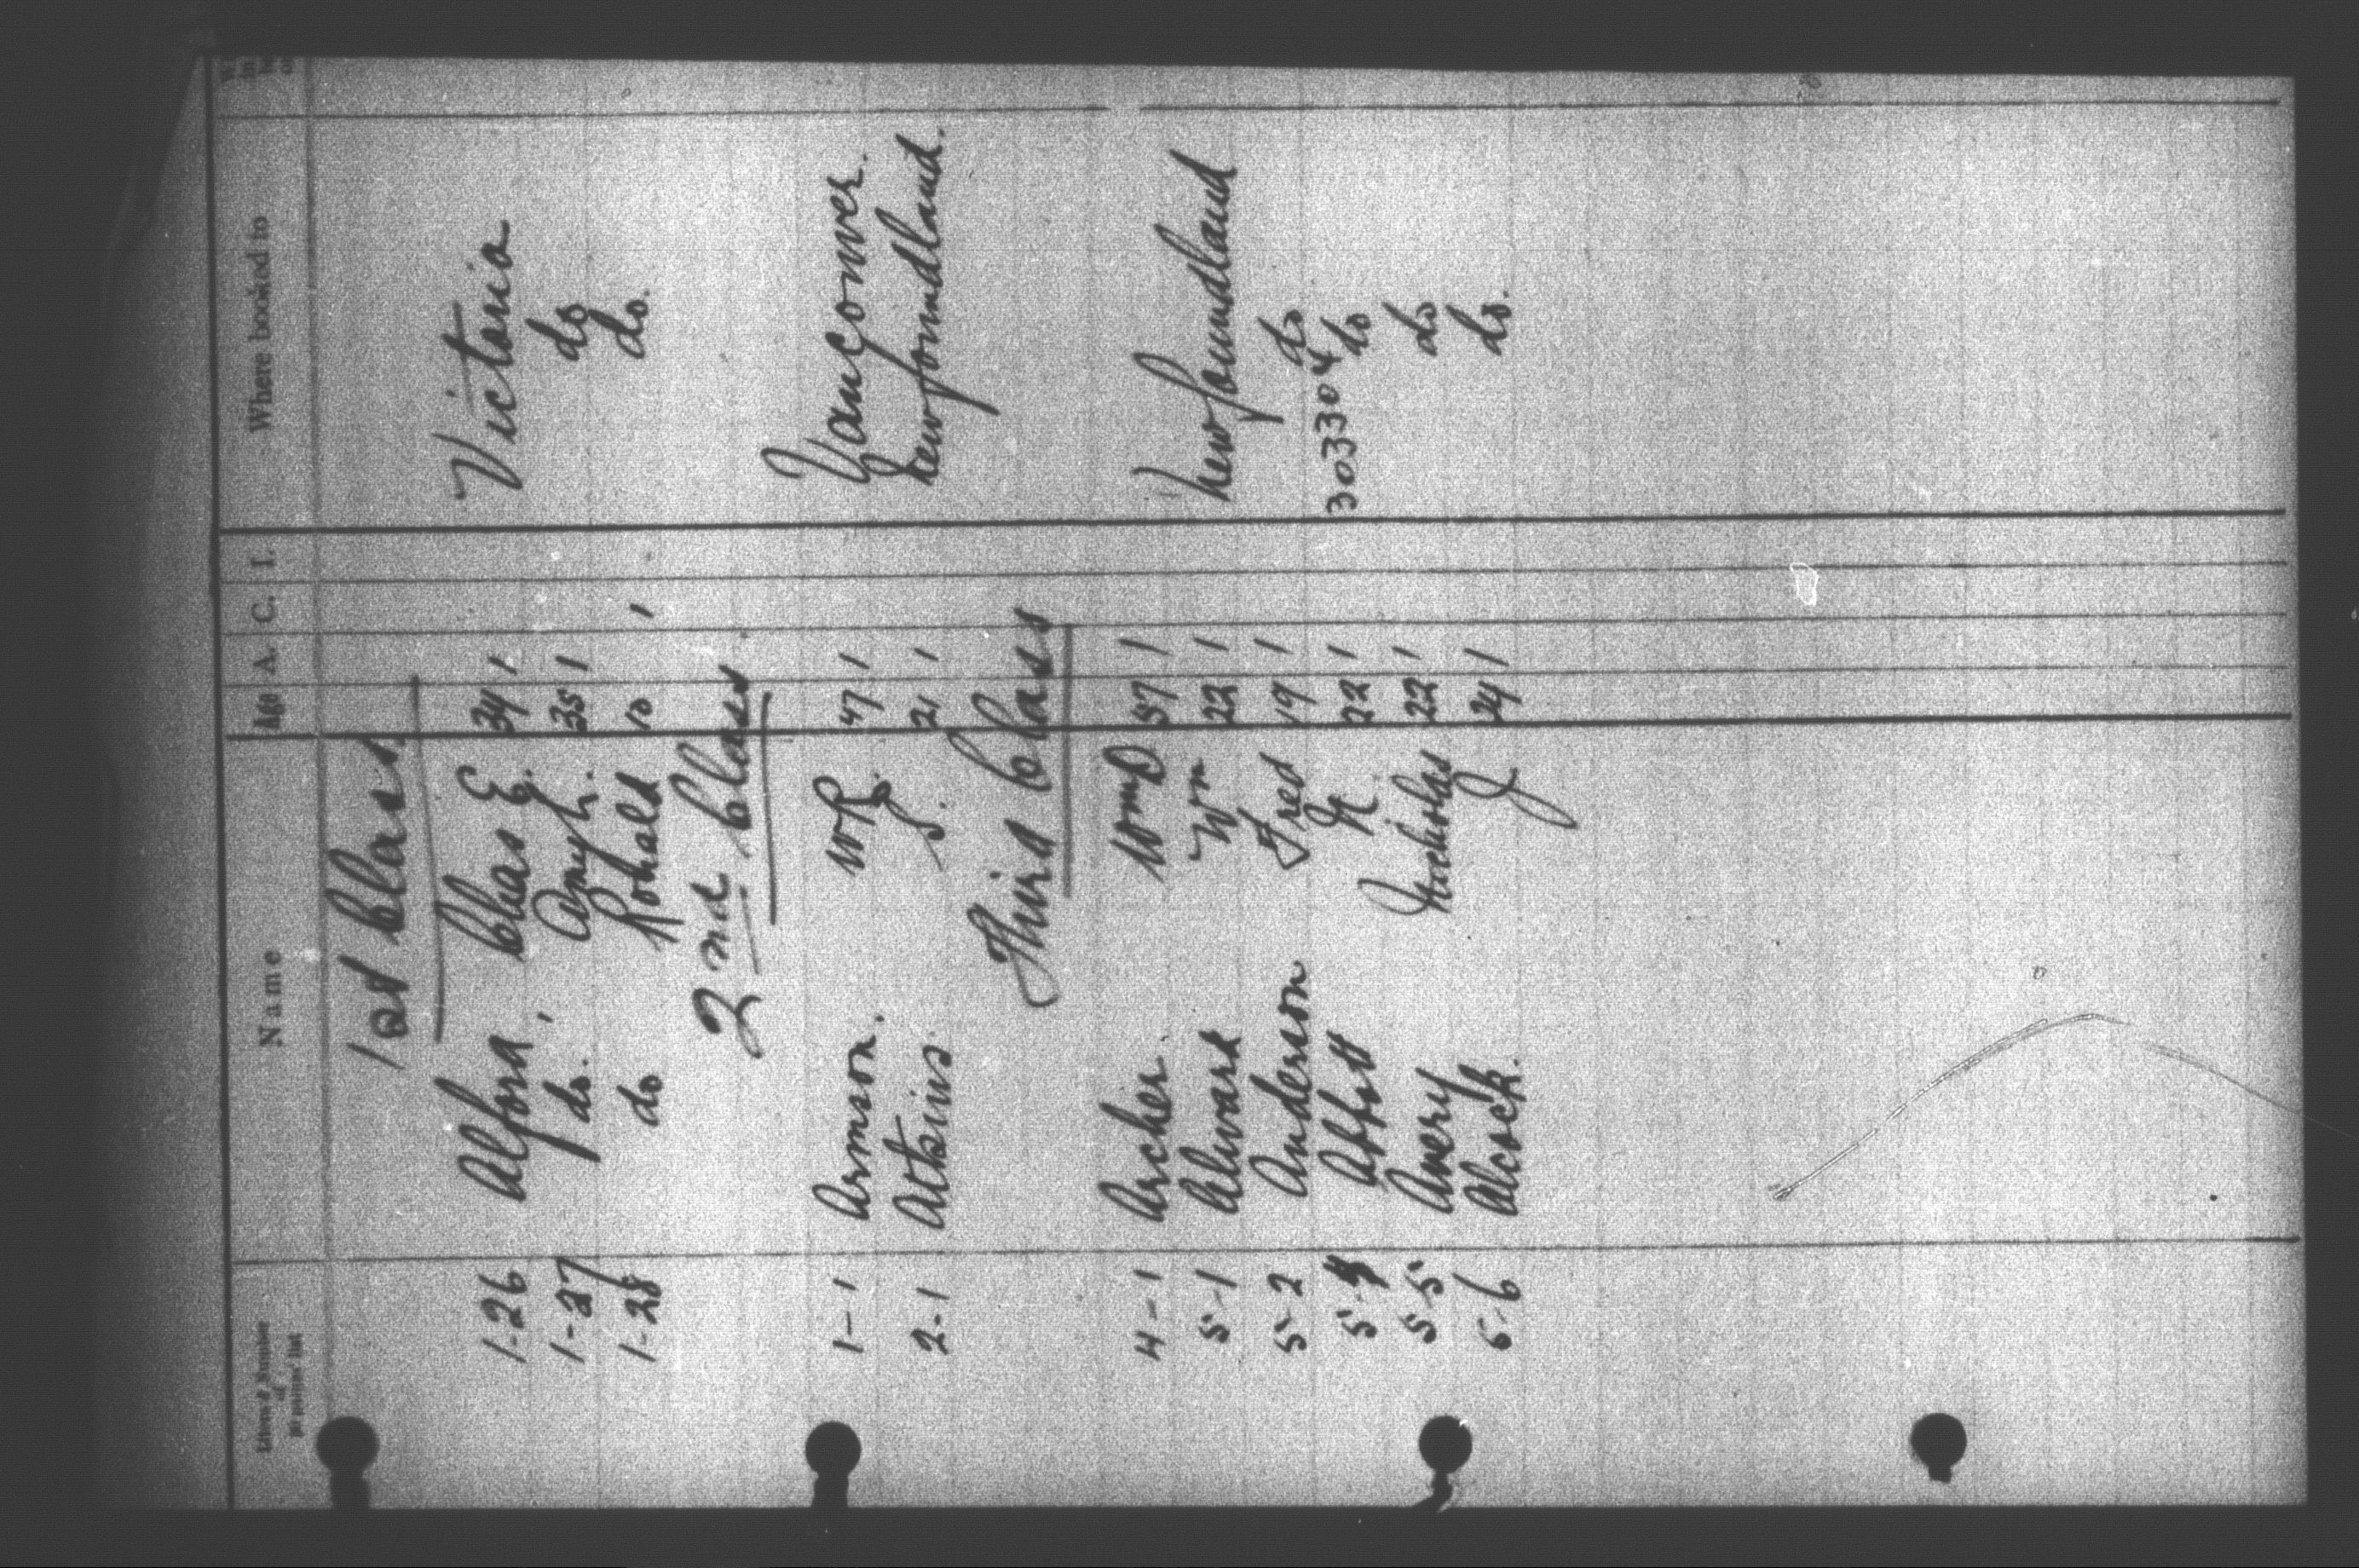 Name Age A. C. I. Where booked to
1st Class
1-26 Alford, Chas E. 34 1 Victoria
1-27 do. Amy L. 35 1 do
1-28 do Ronald 10 1 do.
2nd Class
1-1 Armson. W R. 47 1 Vancouver.
2-1 Atkins S. 21 1 Newfoundland.
Third Class
4-1 Archer. Wm D 57 1 Newfoundland
5-1 Alward Wm 22 1
5-2 Anderson Fred 19 1 do
303304
5-4 Abbott N. 22 1 do
5-5 Avery Nicholas 22 1 do
5-6 Alcock. J 24 1 do.